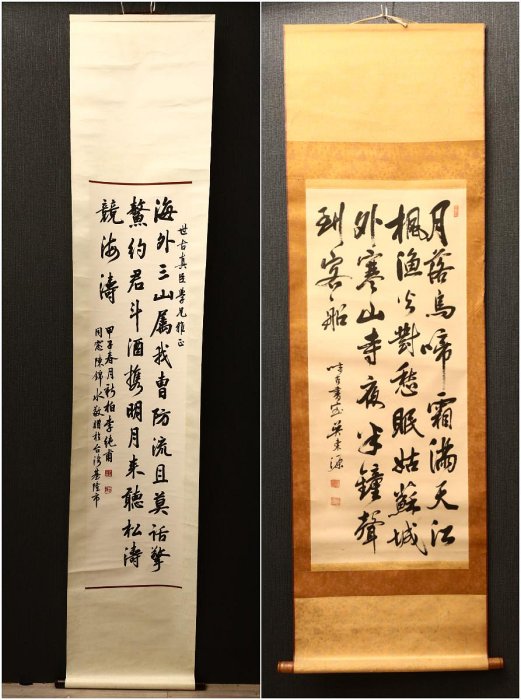 世古真臣學兄雅正
海外三山屬我曹防流且莫話擎
鰲約君斗酒携明月来聽松濤
競海濤
甲子春月新柏李純甫
同窓陳錦水敬贈於台灣基隆市
月落烏啼霜滿天江
楓漁火對愁眠姑蘇城
外寒山寺夜半鐘聲
到客船
吳東源